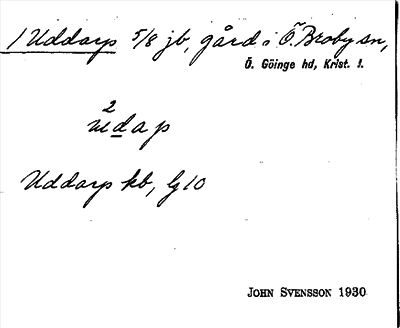 1 Uddarp 5/8 jb, gård i Ö. Broby sn,
Ö. Göinge hd, Krist. l.
2
udap
Uddarp kb, lg 10
JOHN SVENSSON 1930